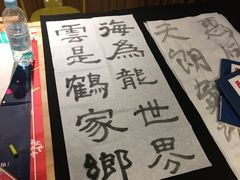 海為龍世界
雲是鶴家鄉
天朗